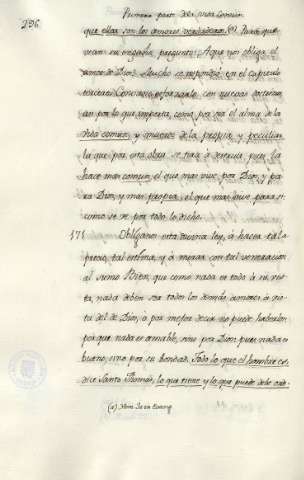 296.
Primera parte dela vida Comun
que ellas son los amores verdaderos (a). Puede que
vean su engaño, pregunto: A que nos obliga el
amor de Dios? Mucho se respondió en el capitulo
Conviene reforzarle con nuevas doctrinas
por lo que importa, como por ser el alma de la
Vida comun, y muerte de la propia y peculiar
la que por esta obra se trae à pues la
hace mas comun, el que mas vive por Dios, y pa
ra Dios, y mas propia, el que mas para si
como se ve por todo lo dicho.
171 Obliganos esta divina ley, à hacer tal a
precio, tal estima, y à mirar con tal veneracion
al sumo Bien, que como nada es todo à su vis
ta, nada deben ser todos los demás amores à vis
ta del de Dios, ò por mejor decir no puede haberlos
porque nada es amable, sino por Dios, pues nada es
bueno, sino por su bondad. Todo lo que el hombre es,
dice Santo Thomás, lo que tiene y lo que puede debe
(a)